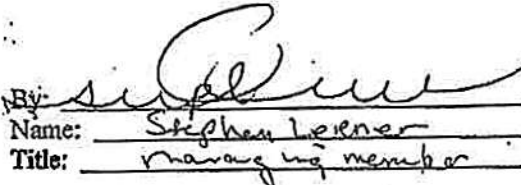 By:
Name: Stephen Lerner
Title: managing member